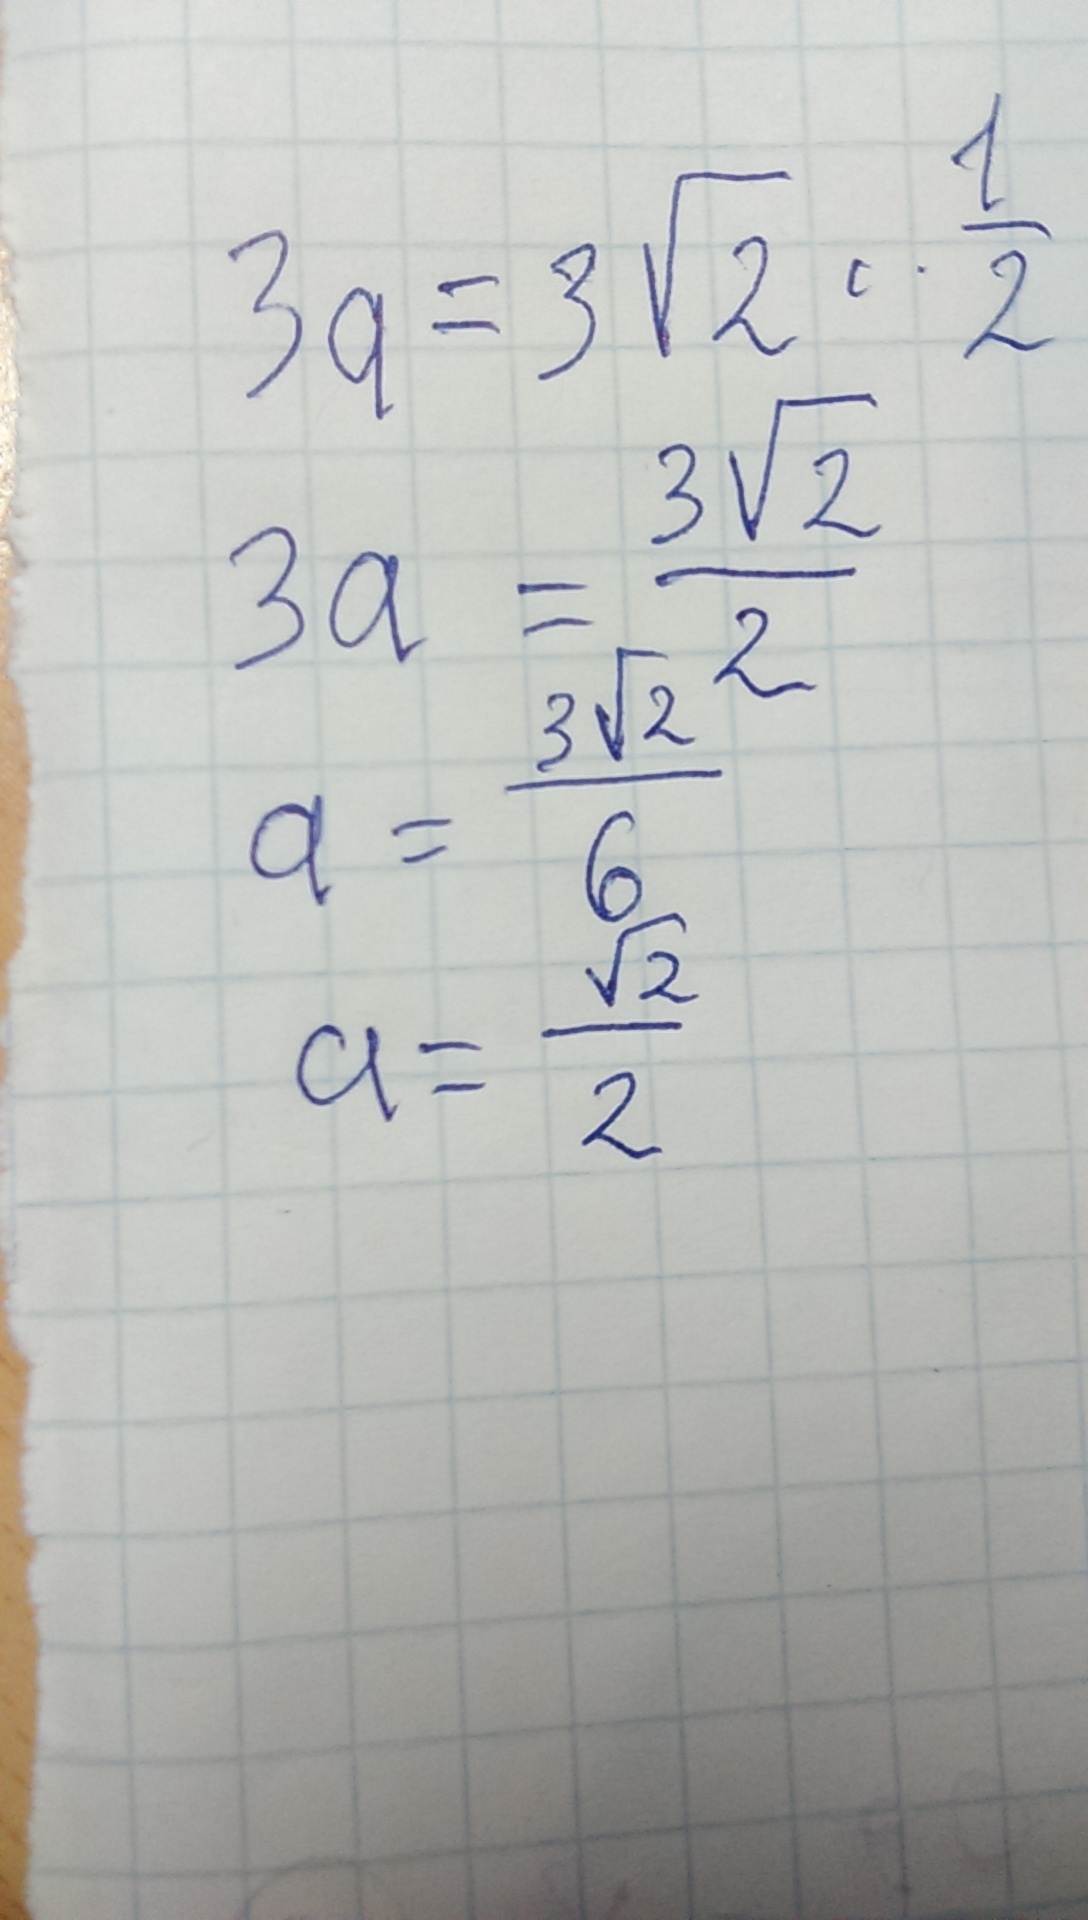 3a = 3√2 · 1/2
3a = 3√2/2
a = 3√2/6
a = √2/2